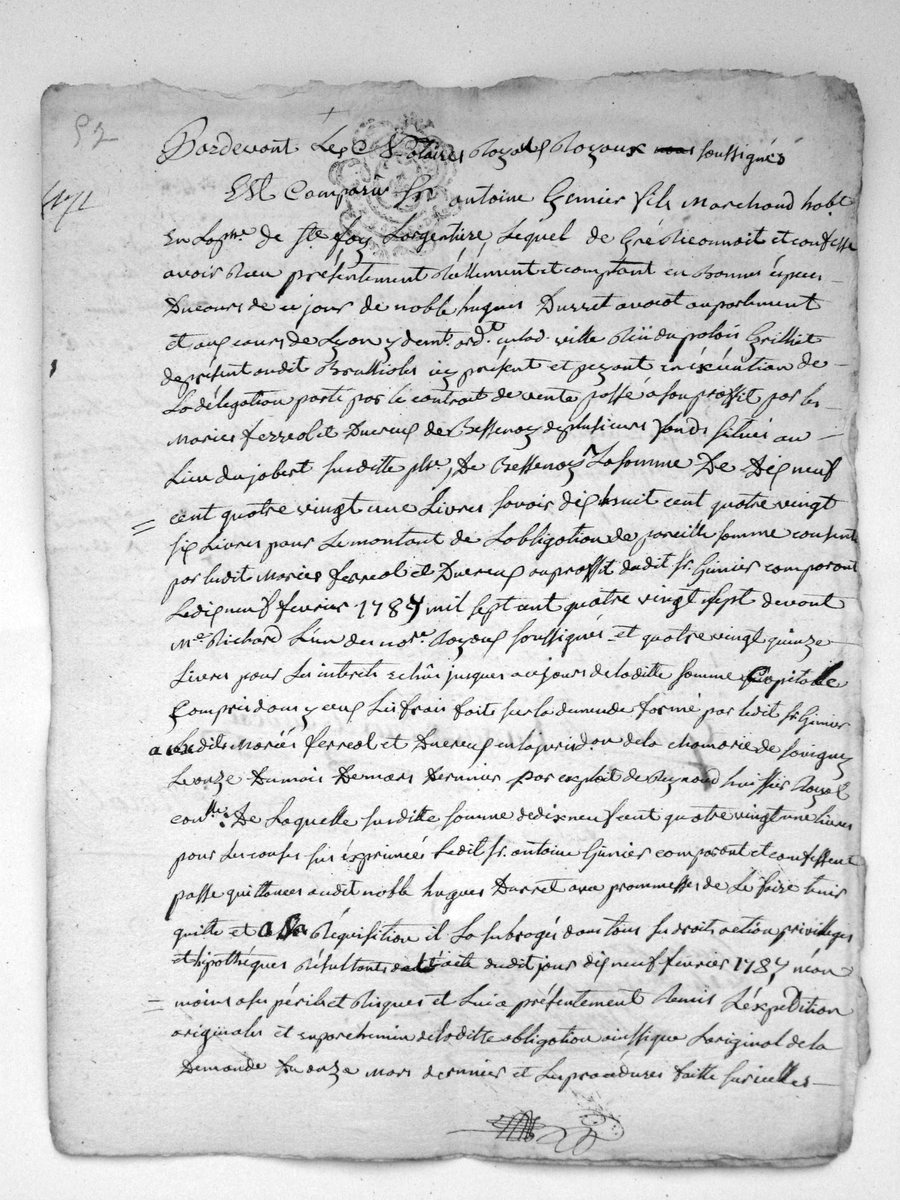 52
Pardevant Les Notaires Royaux soussignés
Est Comparu Sr antoine Gimier fils Marchand habt
En La psse de Ste foy Largentiere, Lequel de Gré Reconnoit et confesse
avoir Reçu présentement Réellement et comptant en bonnes éspeces
Du cours de ce jour de noble hugues Durret avocat au parlement
et aux cours de Lyon y demt ordt en lad. ville Rüe du palais Grilliet
de présent audit Brussioles icy présent et payant en éxécution de
La délégation porté par le contrait de vente passé a son proffit par les
Mariés ferreol et Ducreux de Bessenay de plusieurs fonds situés au
Lieu du jobert susditte psse De Bessenay, La somme De Dix neuf
cent quatre vingt une Livres savoir dix huit cent quatre vingt
six Livres pour Le montant de Lobligation de pareille somme consenti
par lesdit Mariés ferreol et Ducreux au proffit dudit sr. Gimier comparant
Le dix neuf fevrier 1787 mil sept cent quatre vingt sept devant
Me Richard L'un des nores Royaux soussignés et quatre vingt quinze
Livres pour Les interets echûs jusques a ce jour de laditte somme Capitalle
Compris dans yceux Les frais fait sur la demande formé par ledit sr. Gimier
a auxdits Mariés ferreol et Ducreux en la jurisdon de la chamarie de Savigny
Le onze Du mois De mars Dernier par exploit de Reynaud huissier Royal
conllé; De Laquelle susditte somme de dix neuf cent quatre vingt une livres
pour Les causes sus éxprimées Ledit sr. antoine Gimier comparant et confessent
passe quittances audit noble hugues Durret avec prommesses de Le faire tenir
quitte et a Sa Réquisition il La subrogés dans tous ses droits action privilleges
et hipothéques Résultants de L'acte dudit jour dix neuf fevrier 1787 néan
moins a ses périls et Risques et Lui a présentement Remis L'éxpédition
originales et en parchemin de laditte obligation ainssi que Loriginal de la
Demande Du onze Mars dernier et Les procédures faitte sur icelles